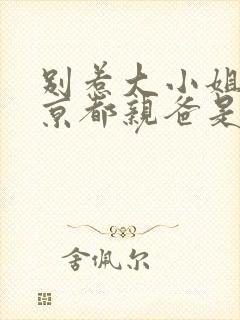 别惹大小姐
京都亲爸是
舍佩尔